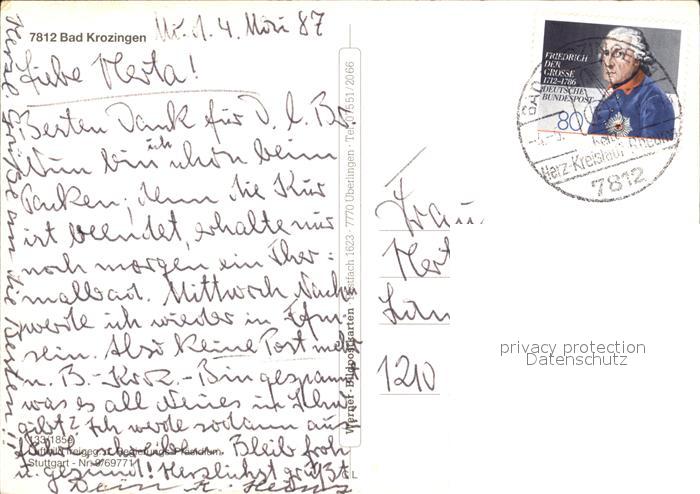 7812 Bad Krozingen 4. März 87
Liebe Herta!
Besten Dank für D. l. Br.
Nun bin ich schon beim
Packen, denn die Kur
ist beendet, erhalte nur
noch morgen ein Ther-
malbad. Mittwoch Nachm.
werde ich wieder in
sein. Also keine Post mehr
n. B.-Kroz. - Bin gespannt
was es all Neues in
gibt? Ich werde sodann aus-
führl. schreiben. Bleib froh
u. gesund! Herzlichst grüßt
Dein
Herzl. Grüße an die
133/185
Luftbild freigeg. Regierungs-Präsidium
Stuttgart - Nr. 9/69771
Werner-Bildpostkarten · Postfach 1623 · 7770 Überlingen · Tel. 07551/2066
FRIEDRICH
DER
GROSSE
1712-1786
DEUTSCHE
BUNDESPOST
80
Herz-Kreislauf
7812
Frau
Hert
1210
privacy protection
Datenschutz